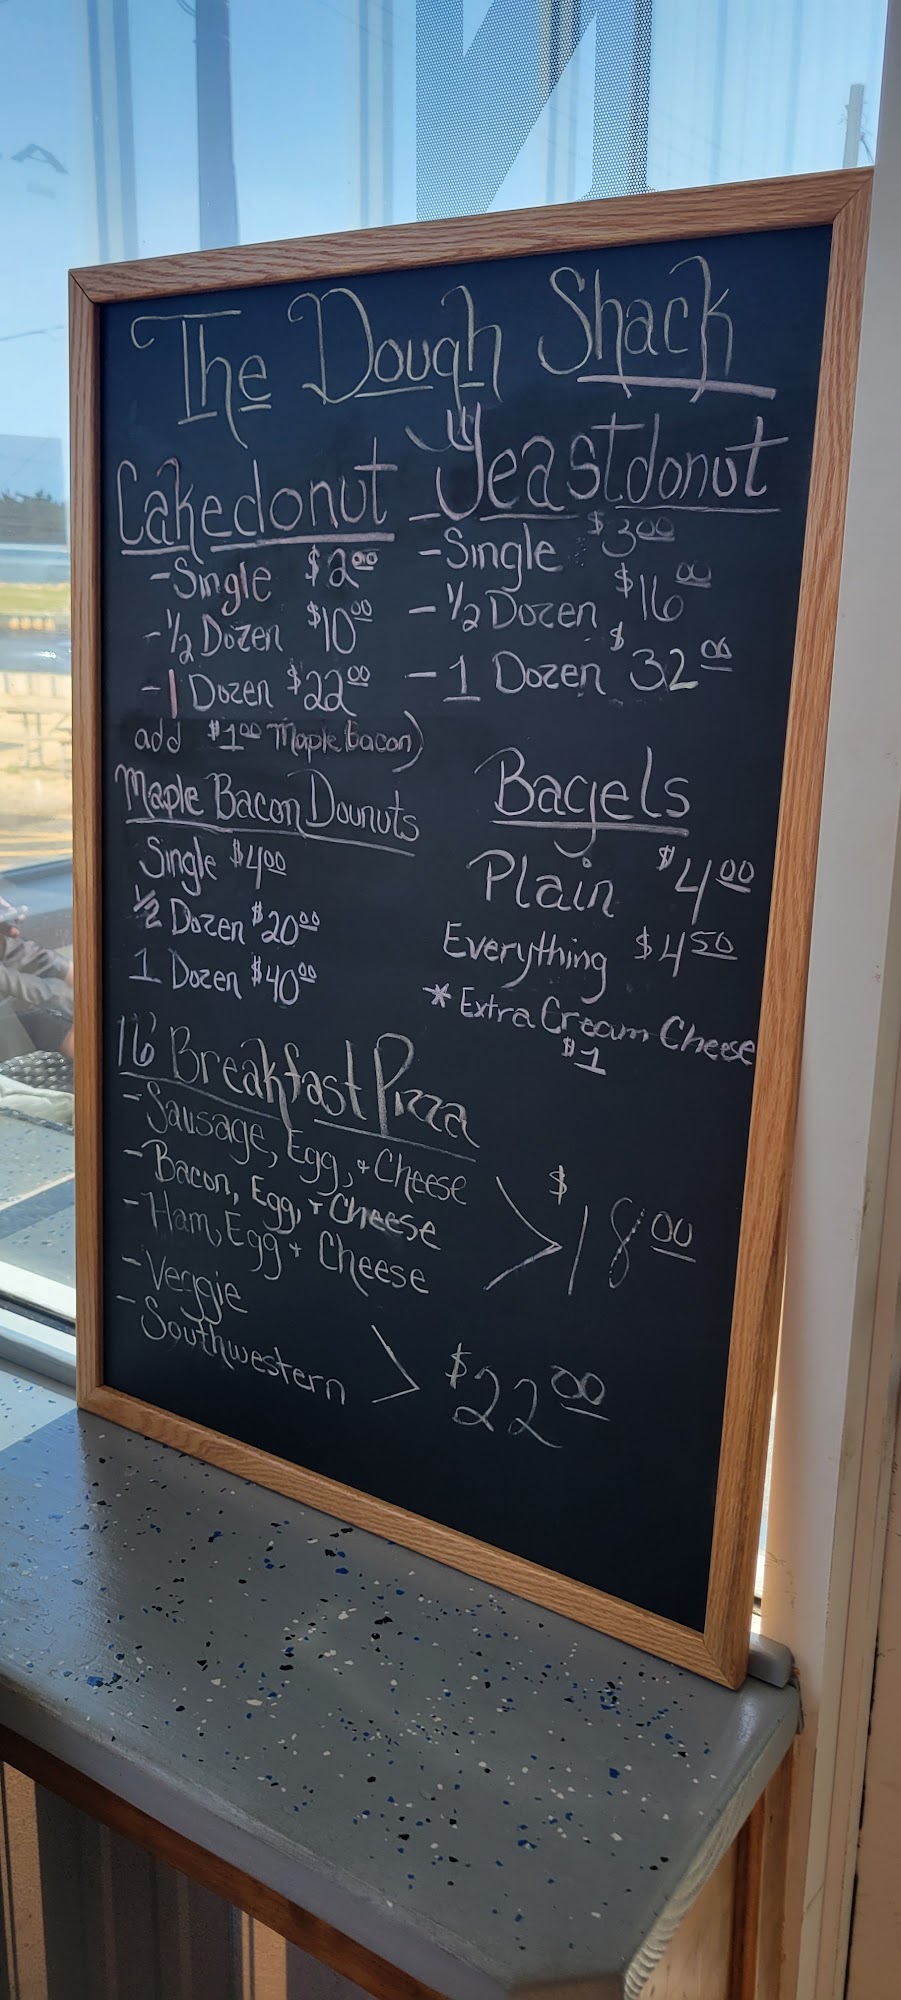 The Dough Shack
Cakedonut
-Single $2.00
-1/2 Dozen $10.00
-1 Dozen $22.00
add $1.00 Maple bacon)
Yeastdonut
-Single $3.00
-1/2 Dozen $16.00
-1 Dozen $32.00
Maple Bacon Dounuts
Single $4.00
1/2 Dozen $20.00
1 Dozen $40.00
Bagels
Plain $4.00
Everything $4.50
* Extra Cream Cheese
$1
16" Breakfast Pizza
-Sausage, Egg, + Cheese
-Bacon, Egg, + Cheese
-Ham, Egg + Cheese
> $18.00
-Veggie
-Southwestern
> $22.00